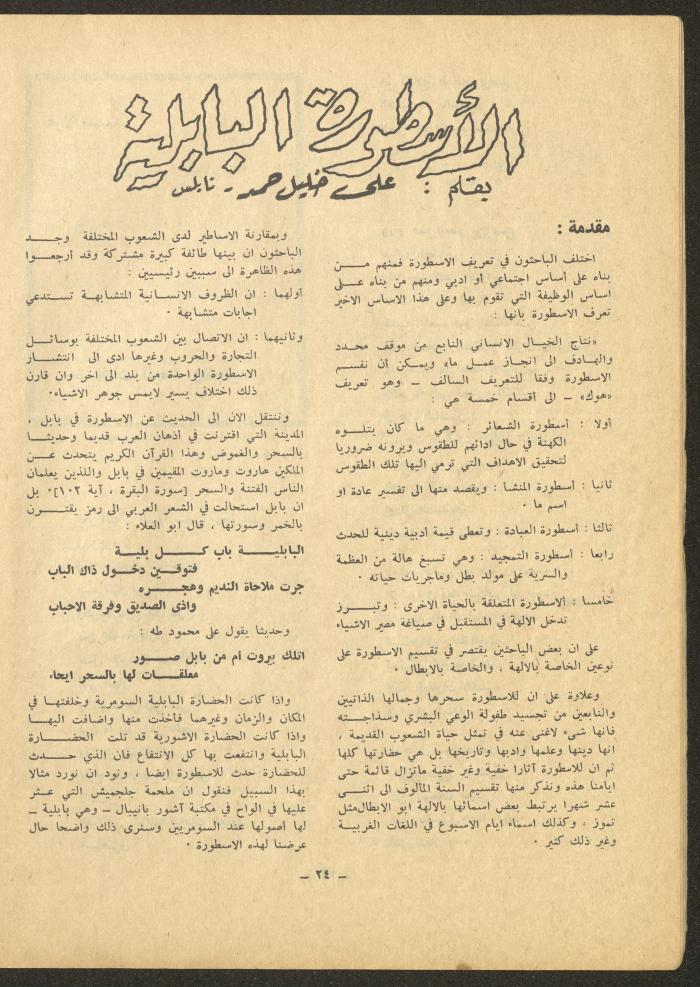 الأسطورة البابلية
بقلم : علي خليل حمد - نابلس
مقدمة :
اختلف الباحثون في تعريف الاسطورة فمنهم مـــن
بناه على أساس اجتماعي أو ادبي ومنهم من بناه عـلـى
اساس الوظيفة التي تقوم بها وعلى هذا الاساس الاخير
تعرف الاسطورة بانها :
«نتاج الخيال الانساني النابع من موقف محدد
والهادف الى انجاز عمـل ما» ويمكـن أن نقســم
الاسطورة وفقا للتعريف السالف ـ وهو تعريف
«هوك» ـ الى أقسام خمسة هي :
أولا : أسطورة الشعائر : وهي ما كان يتلـــوه
الكهنة في حال ادائهم للطقوس ويرونه ضروريا
لتحقيق الاهداف التي ترمي اليها تلك الطقوس
ثانيا : أسطورة المنشا : ويقصد منها الى تفسير عادة او
اسم ما ٠
ثالثا : أسطورة العبادة : وتعطى قيمة أدبية دينية للحدث
رابعا : أسطورة التمجيد : وهي تسبغ هالة من العظمة
والسرية على مولد بطل وماجريات حياته ٠
خامسا : الاسطورة المتعلقة بالحياة الاخرى : وتبـــرز
تدخل الالهة في المستقبل في صياغة مصير الاشياء
على ان بعض الباحثين يقتصر في تقسيم الاسطورة على
نوعين الخاصة بالالهة ، والخاصة بالابطال ٠
وعلاوة على ان للاسطورة سحرها وجمالها الذاتيين
والنابعين من تجسيد طفولة الوعي البشري وسذاجـــته
فانها شىء لاغنى عنه في تمثل حياة الشعوب القديمة ،
انها دينها وعلمها وادبها وتاريخها بل هي حضارتها كلها
ثم ان للاسطورة آثارا خفية وغير خفية ماتزال قائمة حتى
ايامنا هذه ونذكر منها تقسيم السنة المألوف الى اثنـــى
عشر شهرا يرتبط بعض اسمائها بالالهة ابو الابطال‌مثل
تموز ، وكذلك اسماء ايام الاسبوع في اللغات الغربيـة
وغير ذلك كثير ٠
وبمقارنة الاساطير لدى الشعوب المختلفة وجـــد
الباحثون ان بينها طائفة كبيرة مشتركة وقد أرجعـــوا
هذه الظاهرة الى سببين رئيسيين :
أولهما : ان الظروف الانسـانية المتشابهـة تسـتدعي
اجابات متشابهة ٠
وثانيهما : ان الاتصال بين الشعوب المختلفة بوسـائـل
التجارة والحروب وغيرها ادى الى انتشـــار
الاسطورة الواحدة من بلد الى اخر وان قارن
ذلك اختلاف يسير لايمس جوهر الاشياء٠
وننتقل الان الى الحديث عن الاسطورة في بابل ،
المدينة التي اقترنت في أذهان العرب قديما وحديثـا
بالسحر والغموض وهذا القرآن الكريم يتحدث عـــن
الملكين هاروت وماروت المقيمين في بابل واللذين يعلمان
الناس الفتنة والسحر [سورة البقرة ، آية ١٠٢]٠ بل
ان بابل استحالت في الشعر العربي الى رمز يقتـــرن
بالخمر وسورتها ، قال ابو العلاء :
البابليـــة باب كـــل بليـــة
فتوقـــين دخـــول ذاك الباب
جرت ملاحاة النديم وهجـــره
واذى الصديق وفرقة الاحباب
وحديثا يقول على محمود طه :
اتلك بيروت أم من بابل صـــور
معلقـــات لها بالسحر ايحاء
واذا كانت الحضارة البابلية السومرية وخلفتهـا في
المكان والزمان وغيرهما فأخذت منها واضافت اليهـــا
واذا كانت الحضارة الاشورية قد تلت الحضـــارة
البابلية وانتفعت بها كل الانتفاع فان الذي حـــدث
للحضارة حدث للاسطورة ايضا ، ونود ان نورد مثالا
بهذا السبيل فنقول ان ملحمة جلجميش التي عـــثر
عليها في الواح في مكتبة آشور بانيبال ـ وهي بابلية ـ
لها أصولها عند السومريين وسنرى ذلك واضحا حال
عرضنا لهذه الاسطورة ٠
ـ ٢٤ ـ